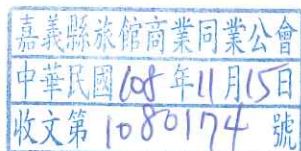 嘉義縣旅館商業同業公會
中華民國108年11月15日
收文第1080174號